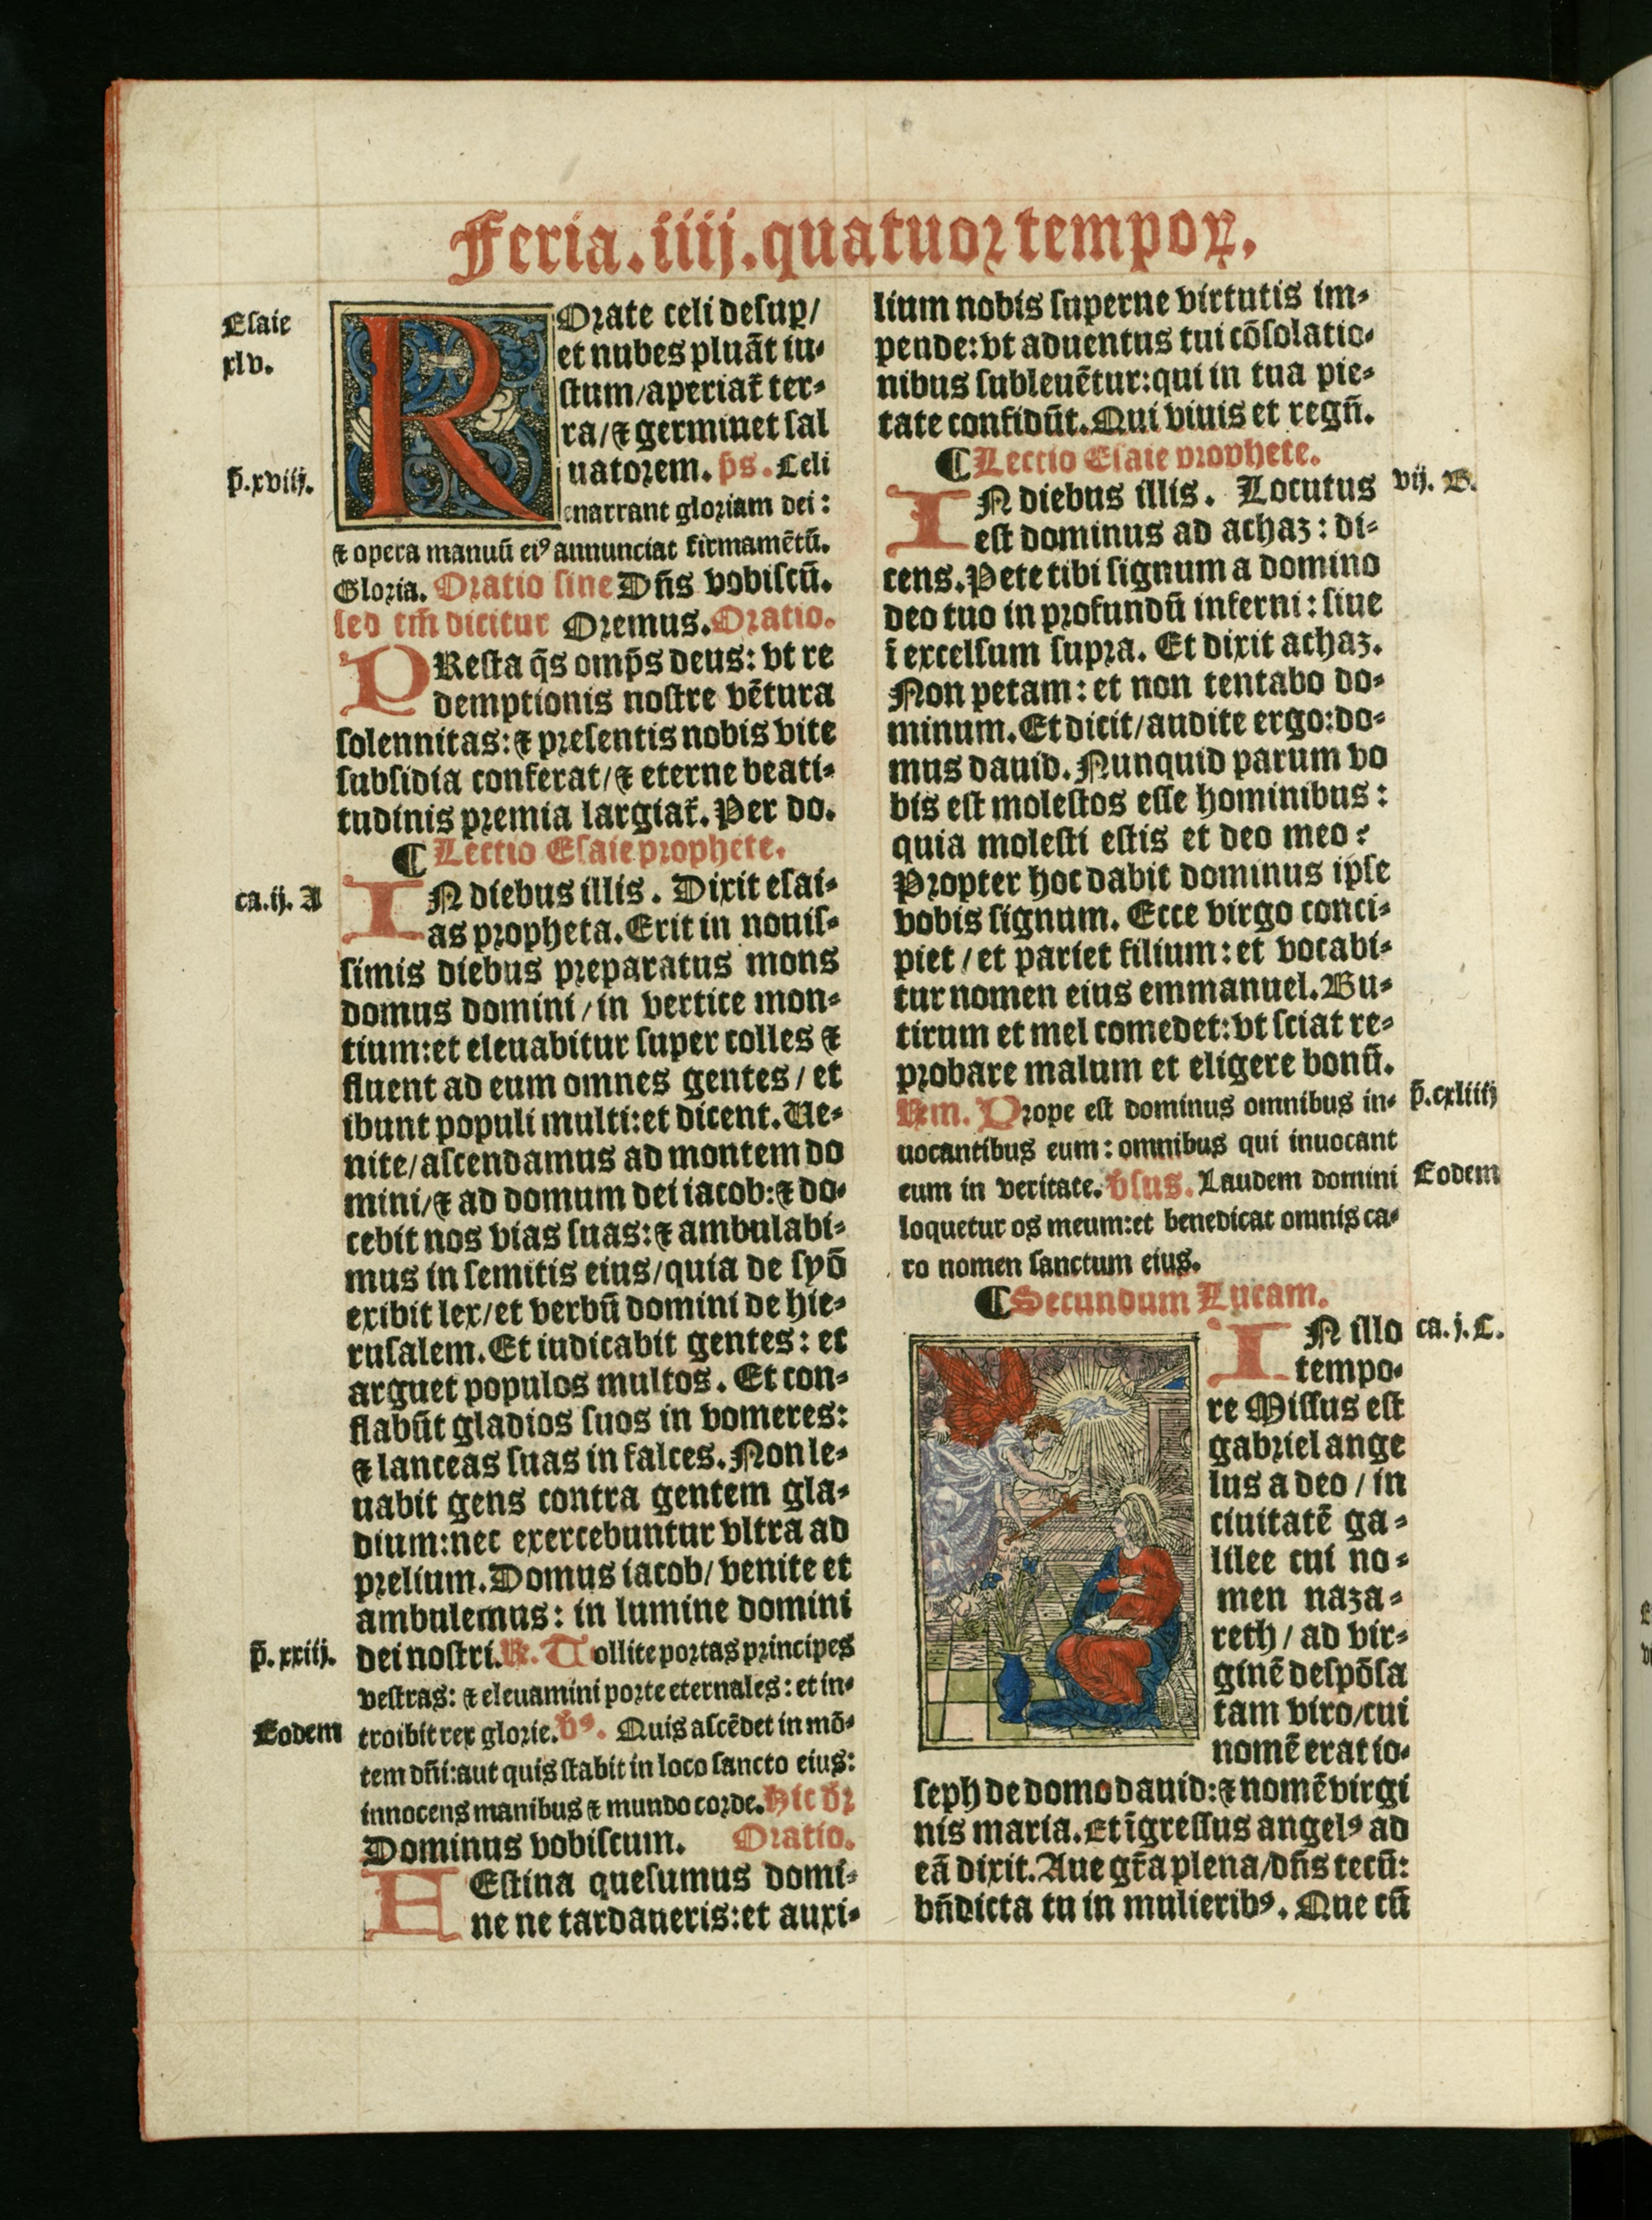 Feria.iiij.quatuor tempoꝝ.
Esaie
xlv.
ROrate celi desuꝑ/
et nubes pluãt iu-
stum/aperiat̃ ter-
ra/⁊ germinet sal
uatorem. p̃s. Celi
p̃.xviij.
enarrant gloriam dei:
⁊ opera manuũ eiꝰ annunciat firmamẽtũ.
Gloria. Oratio sine Dñs vobiscũ.
sed tm̃ dicitur Oremus. Oratio.
PResta q̃s omp̃s deus: vt re
demptionis nostre vẽtura
solennitas: ⁊ presentis nobis vite
subsidia conferat/⁊ eterne beati-
tudinis premia largiat̃. Per do.
¶ Lectio Esaie prophete.
ca.ij. A
IN diebus illis. Dixit esai-
as propheta. Erit in nouis-
simis diebus preparatus mons
domus domini/in vertice mon-
tium: et eleuabitur super colles ⁊
fluent ad eum omnes gentes/et
ibunt populi multi: et dicent. Ue-
nite/ascendamus ad montem do
mini/⁊ ad domum dei iacob: ⁊ do-
cebit nos vias suas: ⁊ ambulabi-
mus in semitis eius/quia de syõ
exibit lex/et verbũ domini de hie-
rusalem. Et iudicabit gentes: et
arguet populos multos. Et con-
flabũt gladios suos in vomeres:
⁊ lanceas suas in falces. Non le-
uabit gens contra gentem gla-
dium: nec exercebuntur vltra ad
prelium. Domus iacob/venite et
ambulemus: in lumine domini
p̃.xxiij.
dei nostri. ℟. Tollite portas principes
vestras: ⁊ eleuamini porte eternales: et in-
Eodem
troibit rex glorie. v̉ꝰ. Quis ascẽdet in mõ-
tem dñi: aut quis stabit in loco sancto eius:
innocens manibus ⁊ mundo corde. Hic dr̃
Dominus vobiscum. Oratio.
FEstina quesumus domi-
ne ne tardaueris: et auxi-
lium nobis superne virtutis im-
pende: vt aduentus tui cõsolatio-
nibus subleuẽtur: qui in tua pie-
tate confidũt. Qui viuis et regñ.
¶ Lectio Esaie prophete.
vij. B.
IN diebus illis. Locutus
est dominus ad achaz: di-
cens. Pete tibi signum a domino
deo tuo in profundũ inferni: siue
ĩ excelsum supra. Et dixit achaz.
Non petam: et non tentabo do-
minum. Et dicit/audite ergo: do-
mus dauid. Nunquid parum vo
bis est molestos esse hominibus:
quia molesti estis et deo meo?
Propter hoc dabit dominus ipse
vobis signum. Ecce virgo conci-
piet/et pariet filium: et vocabi-
tur nomen eius emmanuel. Bu-
tirum et mel comedet: vt sciat re-
probare malum et eligere bonũ.
℟m. Prope est dominus omnibus in-
p̃.cxliiij
uocantibus eum: omnibus qui inuocant
eum in veritate. v̉sus. Laudem domini
Eodem
loquetur os meum: et benedicat omnis ca-
ro nomen sanctum eius.
¶ Secundum Lucam.
IN illo
ca.j.C.
tempo-
re Missus est
gabriel ange
lus a deo/in
ciuitatẽ ga-
lilee cui no-
men naza-
reth/ad vir-
ginẽ despõsa
tam viro/cui
nomẽ erat io-
seph de domo dauid: ⁊ nomẽ virgi
nis maria. Et ĩgressus angelꝰ ad
eã dixit. Aue gr̃a plena/dñs tecũ:
bñdicta tu in mulieribꝰ. Que cũ